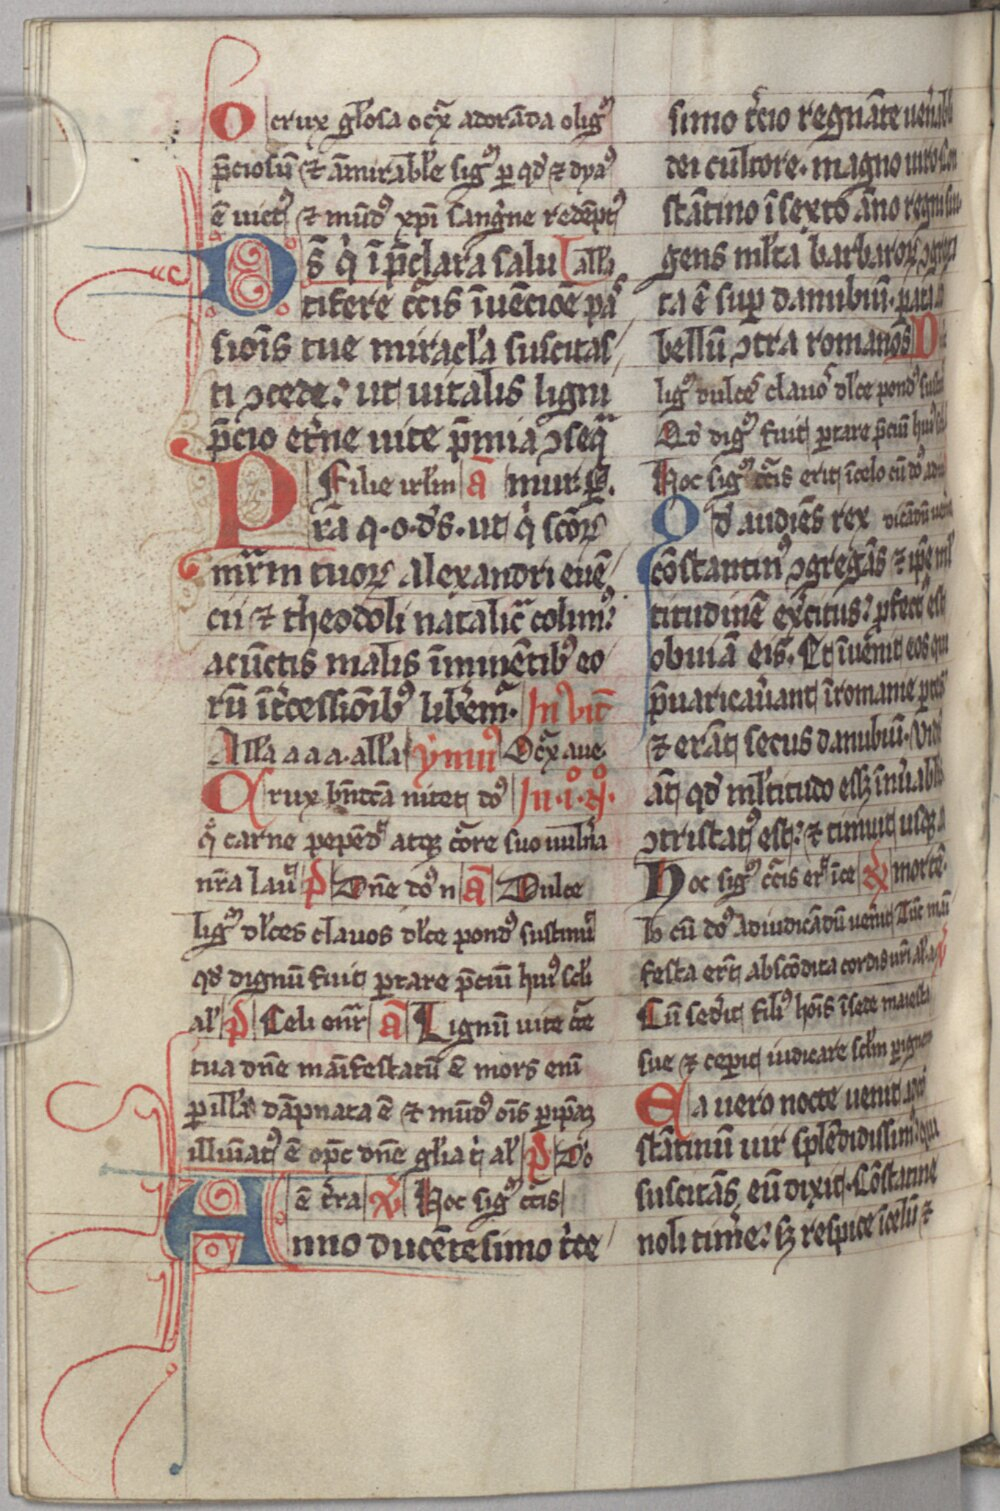 O crux gl'osa o cͣx adorāda o ligͫ
p̄ciosū ⁊ āmirabl'e sigͫ per qd' ⁊ dyaꝰ
ē uictꝰ ⁊ mūdꝰ xp̄i sangͥne redēptꝰ
Ds̄ qͥ ī p̄clara salu all'a
tifere cͨcis īuēcioē pas
siōis tue miracl'a suscitas
ti ↄcede. ut uitalis ligni
p̄cio et'ne uite p̄mia ↄseqͣ
P Filie irl'm ā mur. p.
rā q. o. ds̄. ut qͥ scōꝝ
mr̄m tuoꝝ Alexandri euē
cii ⁊ theodoli natalic̄ colimꝰ
a cūctis malis īminētibꝰ eo
rū īt'cessiōibꝰ lib'em̄. Inuit̄
All'a a a a. all'a ymnꝰ O cͣx aue.
Crux bn̄dc̄a nitet dō In .i. ꝙ.
qͣ carne pepēd' atqꝫ cͦre suo uuln'a
nr̄a lauit p̄ Dn̄e dō n ā Dulce
ligͫ dl'ces clauos dl'ce pondꝰ sustinuit
qd' dignū fuit portare p̄ciū huiꝰ scl'i
al' p̄ Celi enr̄ ā Lignū uite cͨce
tua dn̄e māifestatū ē mors eni
per illā dāpnata ē ⁊ mūdꝰ oīs per ipāꝫ
illuīatꝰ ē op̄c dn̄e gl'ia t' al' p̄ Dō
ē t'ra ꝟ Hoc sigͫ cͨcis
Anno ducētesimo t'ce
simo t'cio regnāte uen'abl'i
dei cultore. magno uiro con
stātino ī sexto āno regni sui
gens ml'ta barbaroꝝ ↄgrega
ta ē sup danubiū. parata
bellū ↄtra romanos
ligͫ dulces clauoˢ dl'ce pondꝰ
Qd' digͫ fuit portare p̄ciū huiꝰ
Hoc sigͫ cͨcis erit ī celo cū dō
Od' audiēs rex dicādū uen
cōstantinꝰ ↄgregās ⁊ ip̄e ml'
titudinē ex'citus. p̄fectꝰ est
obuiā eis. Et īuēnit eos qui
p̄uaricau'ant ī romanie partes
⁊ erāt secus danubiū. Vidēs
āt qd' ml'titudo eēt īnu'abl'is
ↄtristatꝰ est. ⁊ timuit usqꝫ a
Hoc sigͫ cͨcis er' ī ce ꝟ mortē.
lo cū dō ad iudicādū uen'it Tūc mani
festa erūt abscōdita cordis n'ri al' a
Cū sed'it filiꝰ hōis ī sede maiesta
sue ⁊ cep'it iudicare scl'm per ignem
Ea uero nocte uenit ad
stātinū uir splēdidissimꝰ qui
suscitās eū dixit. Cōstatine
noli tim'e. sꝫ respice ī celū ⁊